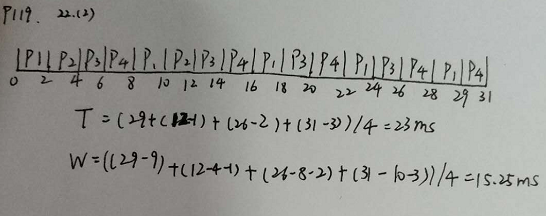 P119. 22.(2)
|P1|P2|P3|P4|P1|P2|P3|P4|P1|P3|P4|P1|P3|P4|P1|P4|
0 2 4 6 8 10 12 14 16 18 20 22 24 26 28 29 31
T = (29+(12-1)+(26-2)+(31-3))/4=23ms
W=((29-9)+(12-4-1)+(26-8-2)+(31-10-3))/4=15.25ms